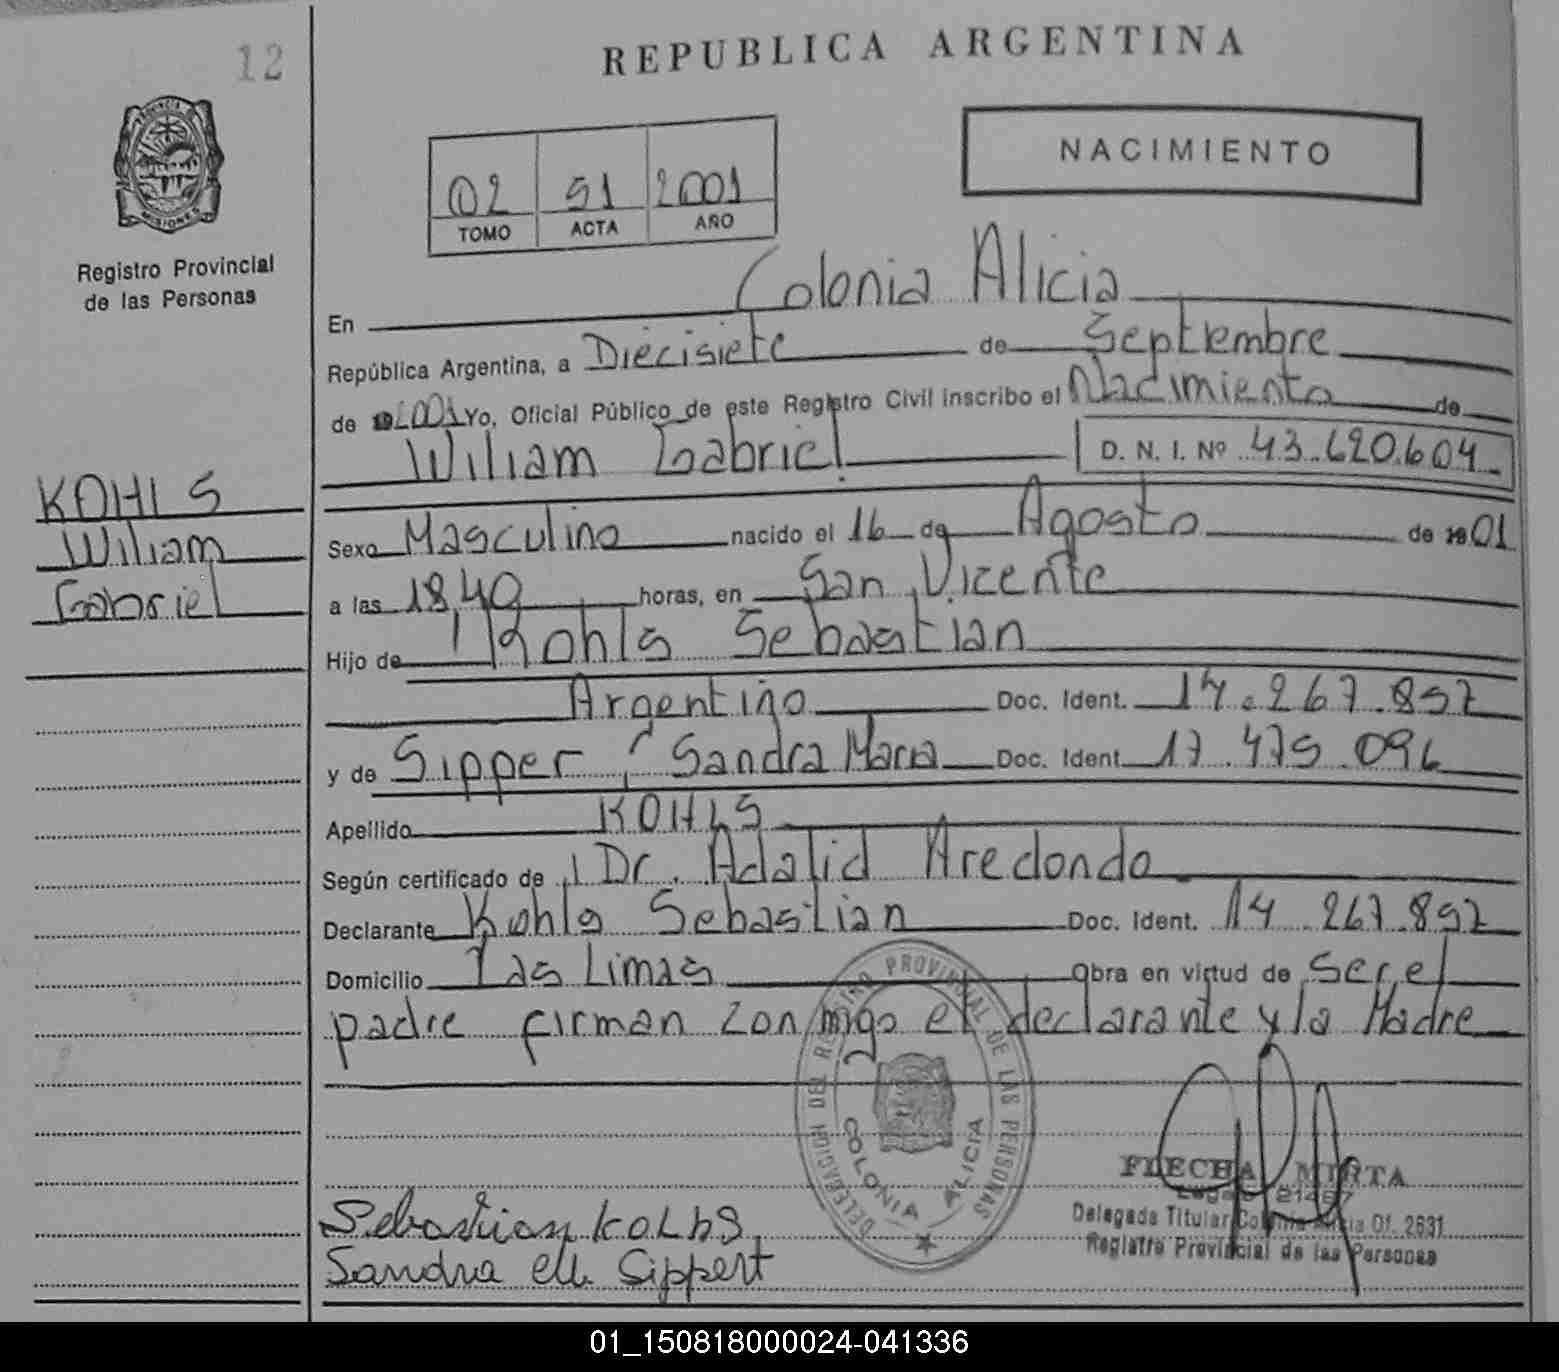 12
REPUBLICA ARGENTINA
PROVINCIA DE
MISIONES
Registro Provincial
de las Personas
02 51 2001
TOMO ACTA AÑO
NACIMIENTO
En Colonia Alicia
República Argentina, a Diecisiete de Septiembre
de 2001 Yo, Oficial Público de este Registro Civil inscribo el Nacimiento de
Wiliam Gabriel D. N. I. Nº 43.620.604
KOHLS
Wiliam
Gabriel
Sexo Masculino nacido el 16 de Agosto de 01
a las 18,40 horas, en San Vicente
Hijo de Kohls Sebastian
Argentino Doc. Ident. 14.267.892
y de Sipper Sandra Maria Doc. Ident. 17.475.096
Apellido KOHLS
Según certificado de Dr. Adalid Aredondo
Declarante Kohls Sebastian Doc. Ident. 14.267.892
Domicilio Las Limas Obra en virtud de ser el
padre firman conmigo el declarante y la Madre
DELEGACION DEL REGISTRO PROVINCIAL DE LAS PERSONAS
COLONIA ALICIA
FLECHA MIRTA
Legajo 21467
Delegada Titular Colonia Alicia Of. 2631
Registro Provincial de las Personas
Sebastian KOLhS
Sandra Sippert
01_150818000024-041336